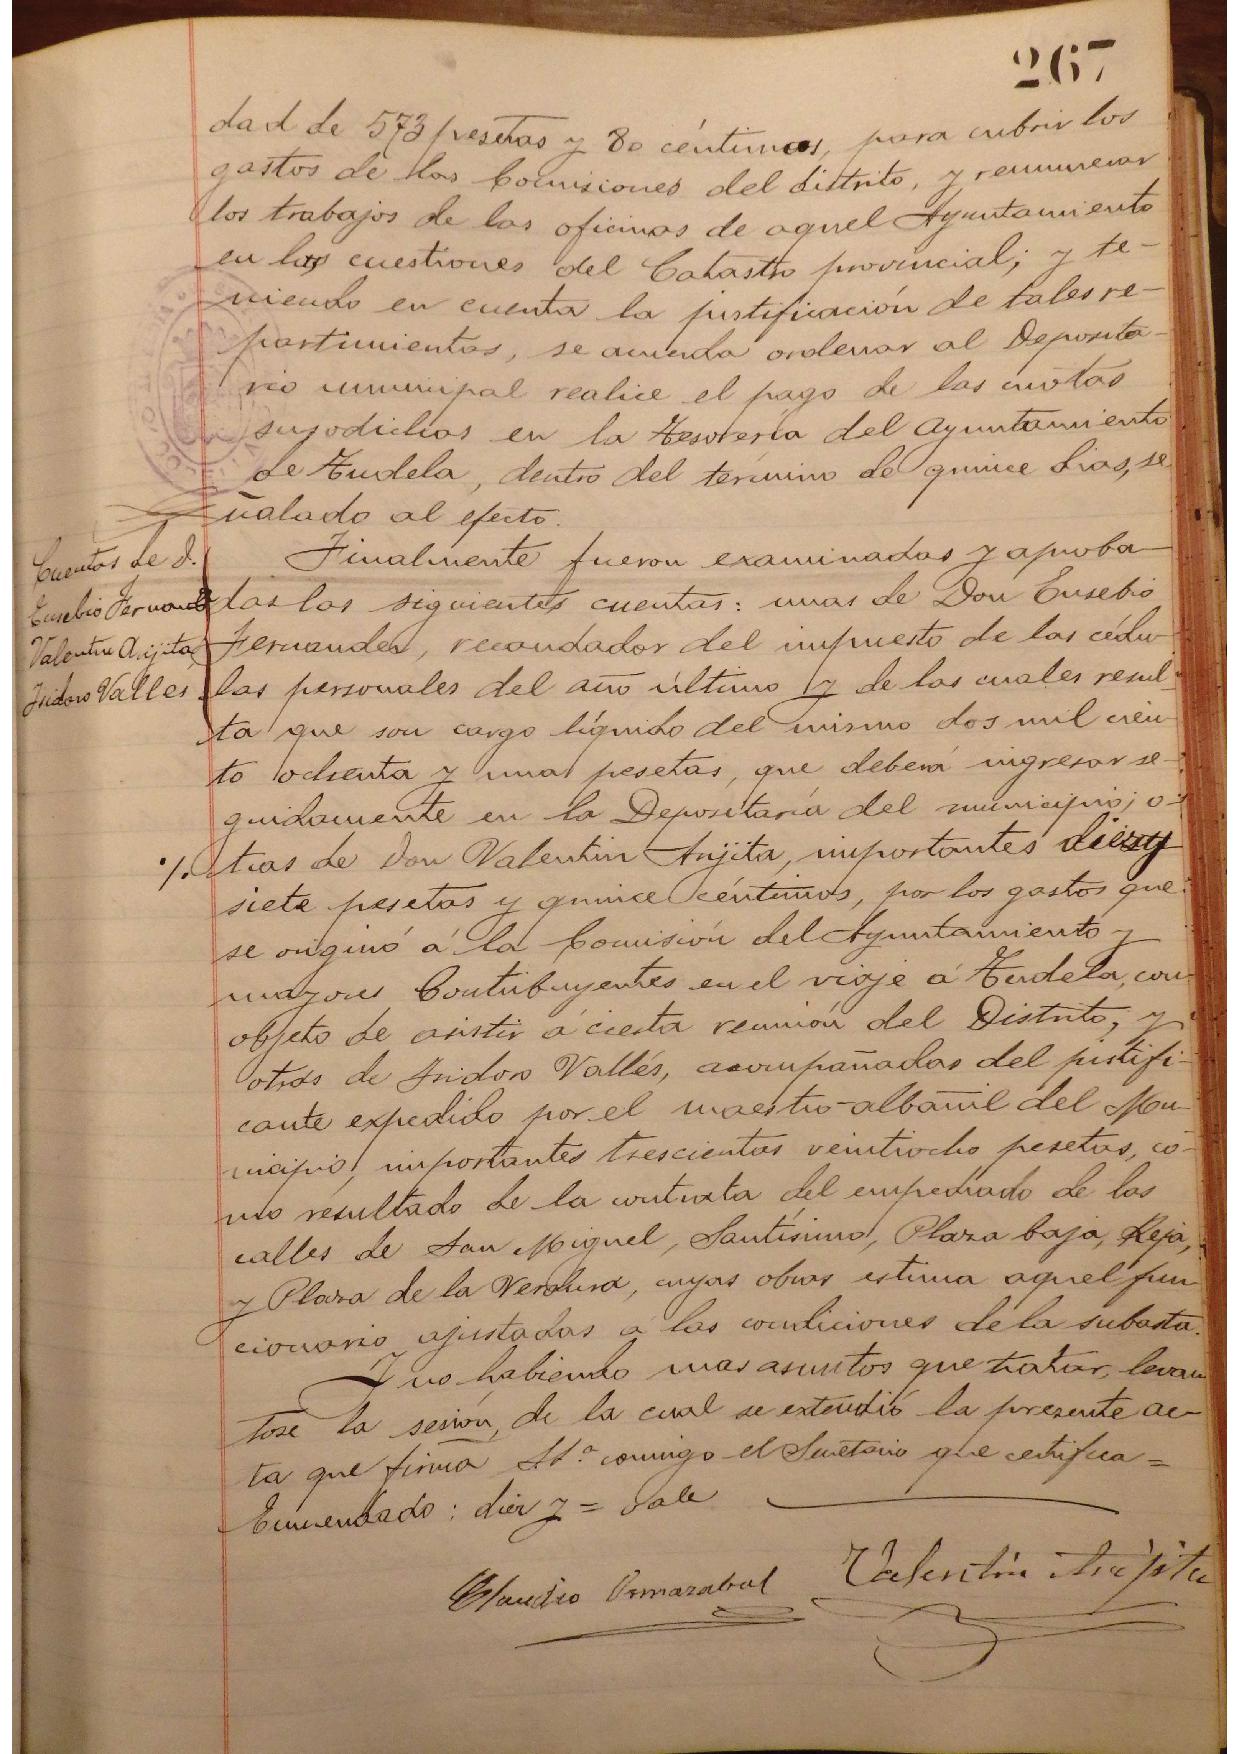 267
dad de 573 pesetas y 80 céntimos, para cubrir los
gastos de las Comisiones del distrito, y remunerar
los trabajos de las oficinas de aquel Ayuntamiento
en las cuestiones del Catastro provincial; y te-
niendo en cuenta la justificación de tales re-
partimientos, se acuerda ordenar al Deposita-
rio municipal realice el pago de las cuotas
susodichas en la Tesorería del Ayuntamiento
de Tudela, dentro del término de quince dias, se
ñalado al efecto.
Cuentas de D.
Eusebio Fernand
Valentin Arijita,
Isidoro Valles.
Finalmente fueron examinadas y aproba-
das las siguientes cuentas: unas de Don Eusebio
Fernandez, recaudador del impuesto de las cédu-
las personales del año último y de las cuales resul-
ta que son cargo líquido del mismo dos mil cien-
to ochenta y una pesetas, que deberá ingresar se-
guidamente en la Depositaría del municipio; o-
tras de Don Valentin Arijita, importantes diez y
siete pesetas y quince céntimos, por los gastos que
se originó á la Comisión del Ayuntamiento y
mayores Contribuyentes en el viaje á Tudela, con
objeto de asistir á cierta reunión del Distrito, y
otras de Isidoro Vallés, acompañadas del justifi-
cante expedido por el maestro-albañil del Mu-
nicipio, importantes trescientas veintiocho pesetas, co-
mo resultado de la contrata del empedrado de las
calles de San Miguel, Santísimo, Plaza baja, Reja,
y Plaza de la Verdura, cuyas obras estima aquel fun
cionario ajustadas á las condiciones de la subasta.
Y no habiendo mas asuntos que tratar, levan
tose la sesión, de la cual se extendió la presente ac-
ta que firma conmigo el Secretario que certifica =
Enmendado: diez y = Vale
Claudio Ormazabal Valentin Arijita